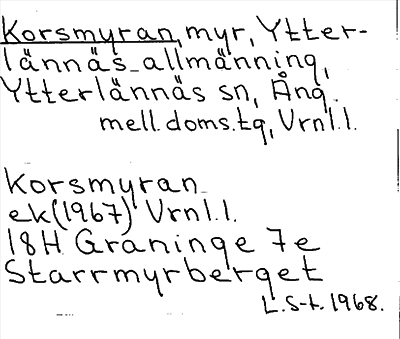 Korsmyran, myr, Ytter-
lännäs allmänning,
Ytterlännäs sn, Ång.
mell. doms.tg, Vrnl.l.
Korsmyran
ek(1967) Vrnl.l.
18H Graninge 7e
Starrmyrberget
L.S-t. 1968.